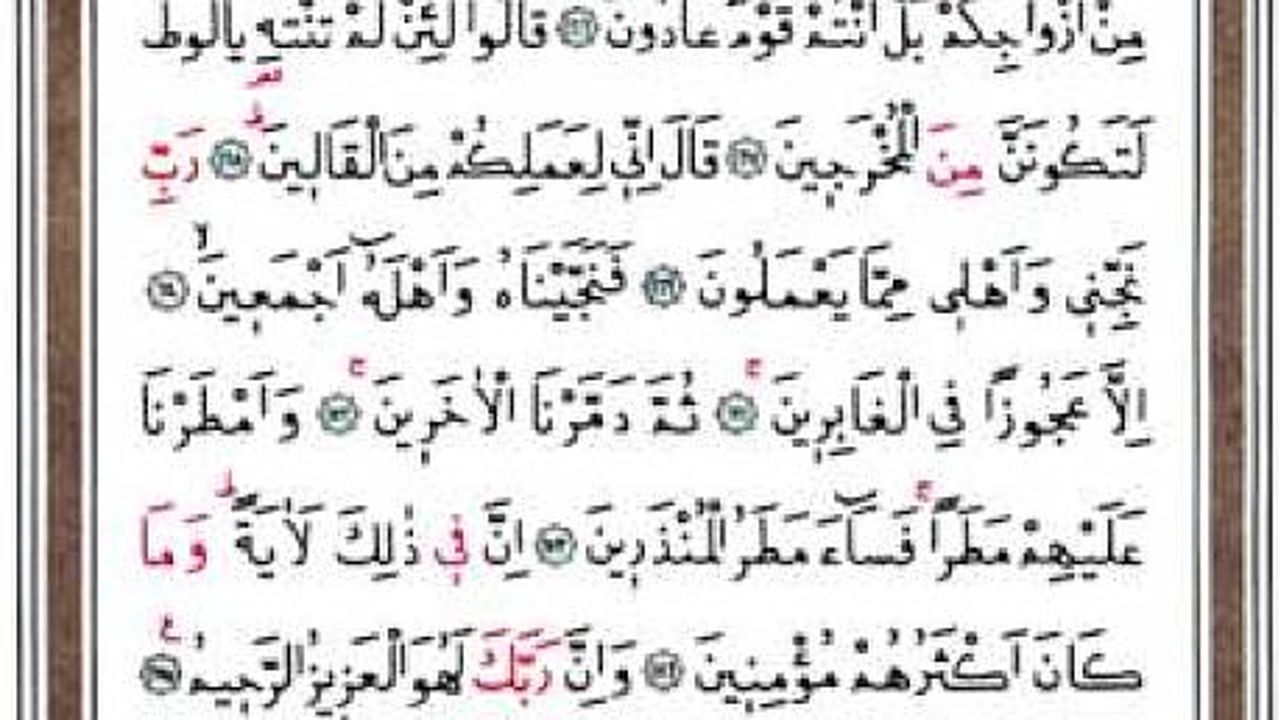 مِنْ اَزْوَاجِكُمْ بَلْ اَنْتُمْ قَوْمٌ عَادُونَ ﴿١٦٦﴾ قَالُوا لَئِنْ لَمْ تَنْتَهِ يَالُوطُ
لَتَكُونَنَّ مِنَ الْمُخْرَجِينَ ﴿١٦٧﴾ قَالَ اِنِّي لِعَمَلِكُمْ مِنَ الْقَالِينَ ﴿١٦٨﴾ رَبِّ
نَجِّنِي وَاَهْلِي مِمَّا يَعْمَلُونَ ﴿١٦٩﴾ فَنَجَّيْنَاهُ وَاَهْلَهُٓ اَجْمَعِينَ ﴿١٧٠﴾
اِلَّا عَجُوزًا فِي الْغَابِرِينَ ﴿١٧١﴾ ثُمَّ دَمَّرْنَا الْاٰخَرِينَ ﴿١٧٢﴾ وَاَمْطَرْنَا
عَلَيْهِمْ مَطَرًا فَسَٓاءَ مَطَرُ الْمُنْذَرِينَ ﴿١٧٣﴾ اِنَّ فِي ذٰلِكَ لَاٰيَةً وَمَا
كَانَ اَكْثَرُهُمْ مُؤْمِنِينَ ﴿١٧٤﴾ وَاِنَّ رَبَّكَ لَهُوَ الْعَزِيزُ الرَّحِيمُ ﴿١٧٥﴾